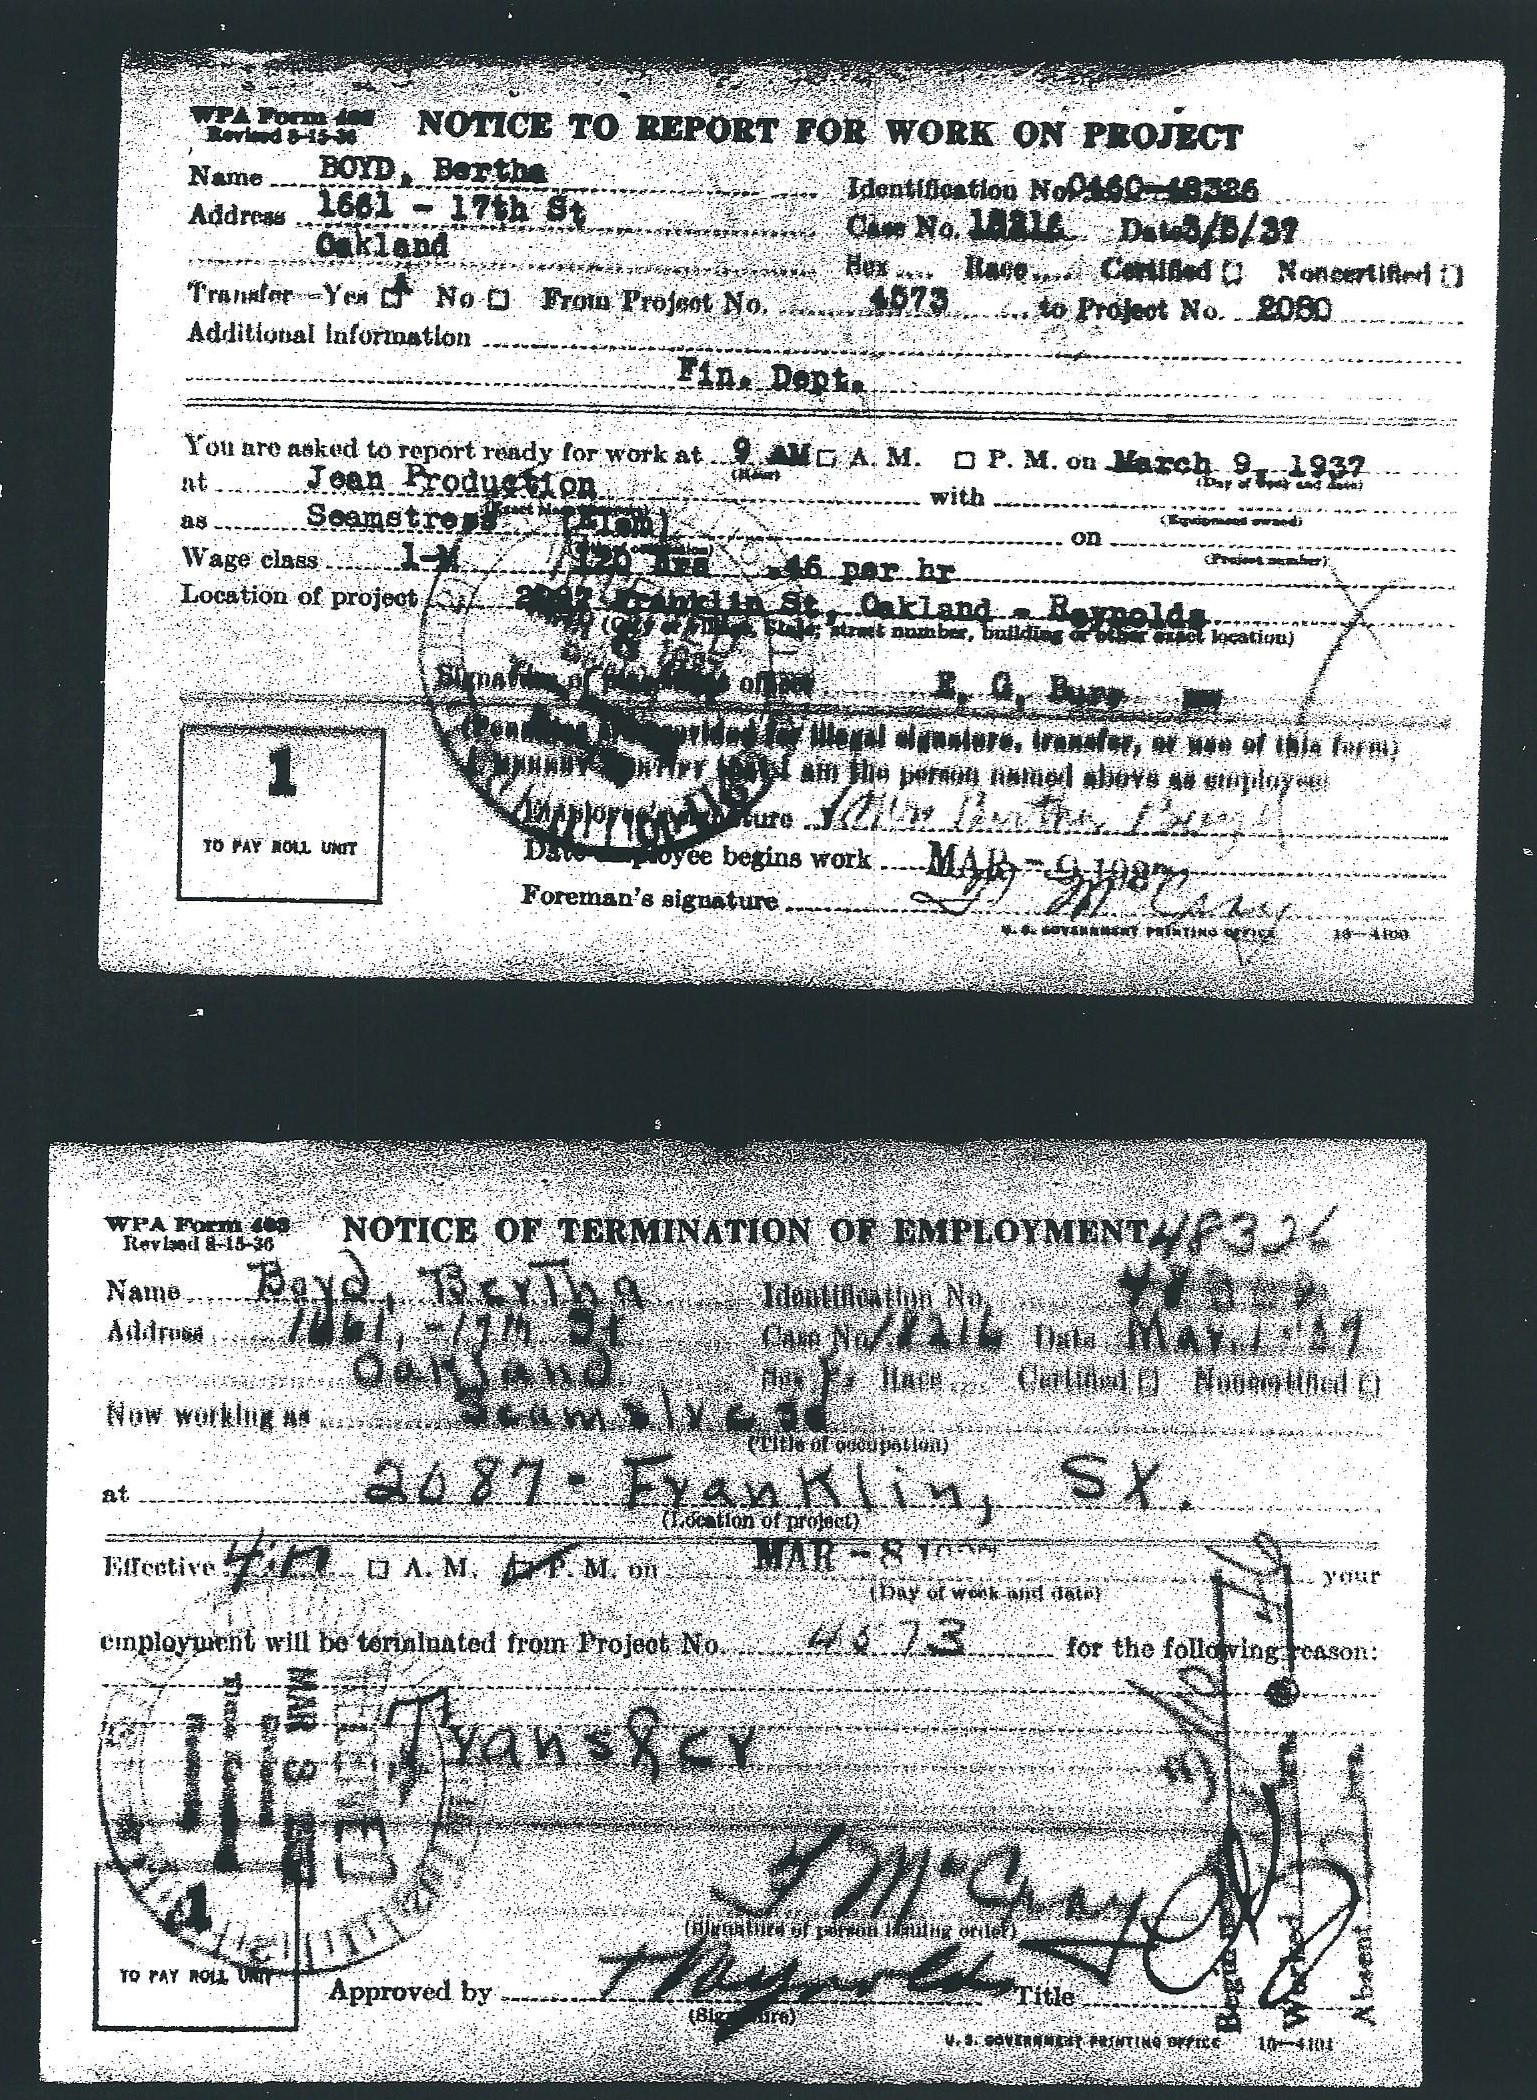 WPA Form 402
Revised 8-15-36
NOTICE TO REPORT FOR WORK ON PROJECT
Name BOYD, Bertha
Identification No. 0460-48326
Address 1661 - 17th St
Case No. 18216 Date 3/5/37
Oakland
Sex Race Certified Noncertified
Transfer—Yes No From Project No. 4573 to Project No. 2080
Additional Information
Fin. Dept.
You are asked to report ready for work at 9 AM A. M. P. M. on March 9, 1937
(Hour) (Day of week and date)
at Jean Production with
(Equipment owned)
as Seamstress on
(Project number)
Wage class 1-M 120 hrs .46 per hr
Location of project Franklin St, Oakland - Reynolds
(City or village, State, street number, building or other exact location)
Signature of officer E. G. Burr
(Penalties provided for illegal signature, transfer, or use of this form)
I HEREBY CERTIFY that I am the person named above as employee
Employee's signature Bertha Boyd
Date employee begins work MAR - 9 1937
Foreman's signature McCray
1
TO PAY ROLL UNIT
U. S. GOVERNMENT PRINTING OFFICE 16—4100
WPA Form 403
Revised 8-15-36
NOTICE OF TERMINATION OF EMPLOYMENT 48326
Name Boyd, Bertha
Identification No.
Address 1661, -17th St
Case No. 18216 Date Mar.
Oakland.
Sex Race Certified Noncertified
Now working as Seamstress
(Title of occupation)
at 2087 - Franklin, St.
(Location of project)
Effective A. M. P. M. on MAR - 8 your
(Day of week and date)
employment will be terminated from Project No. 4573 for the following reason:
Transfer
MAR 8
McCray
(Signature of person issuing order)
1
TO PAY ROLL UNIT
Approved by Reynolds Title
(Signature)
Begin
Worked
Absent
U. S. GOVERNMENT PRINTING OFFICE 16—4101